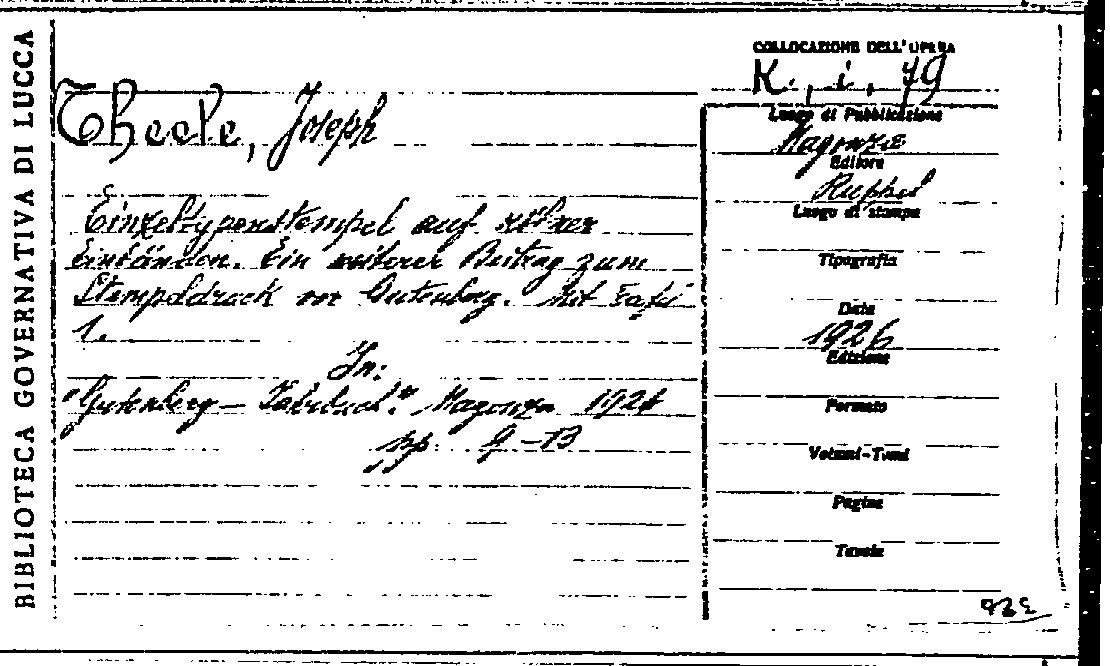 BIBLIOTECA GOVERNATIVA DI LUCCA
Theele, Joseph
Einzeltypenstempel auf kölner
Einbänden. Ein weiterer Beitrag zum
Stempeldruck vor Gutenberg. Mit
1.
In:
"Gutenberg - Jahrbuch". Magonza 1926
pp. 9-13
COLLOCAZIONE DELL'OPERA
K., i, 79
Luogo di Pubblicazione
Magonza
Editore
Ruppel
Luogo di stampa
Tipografia
Data
1926
Edizione
Formato
Volumi-Tomi
Pagine
Tavole